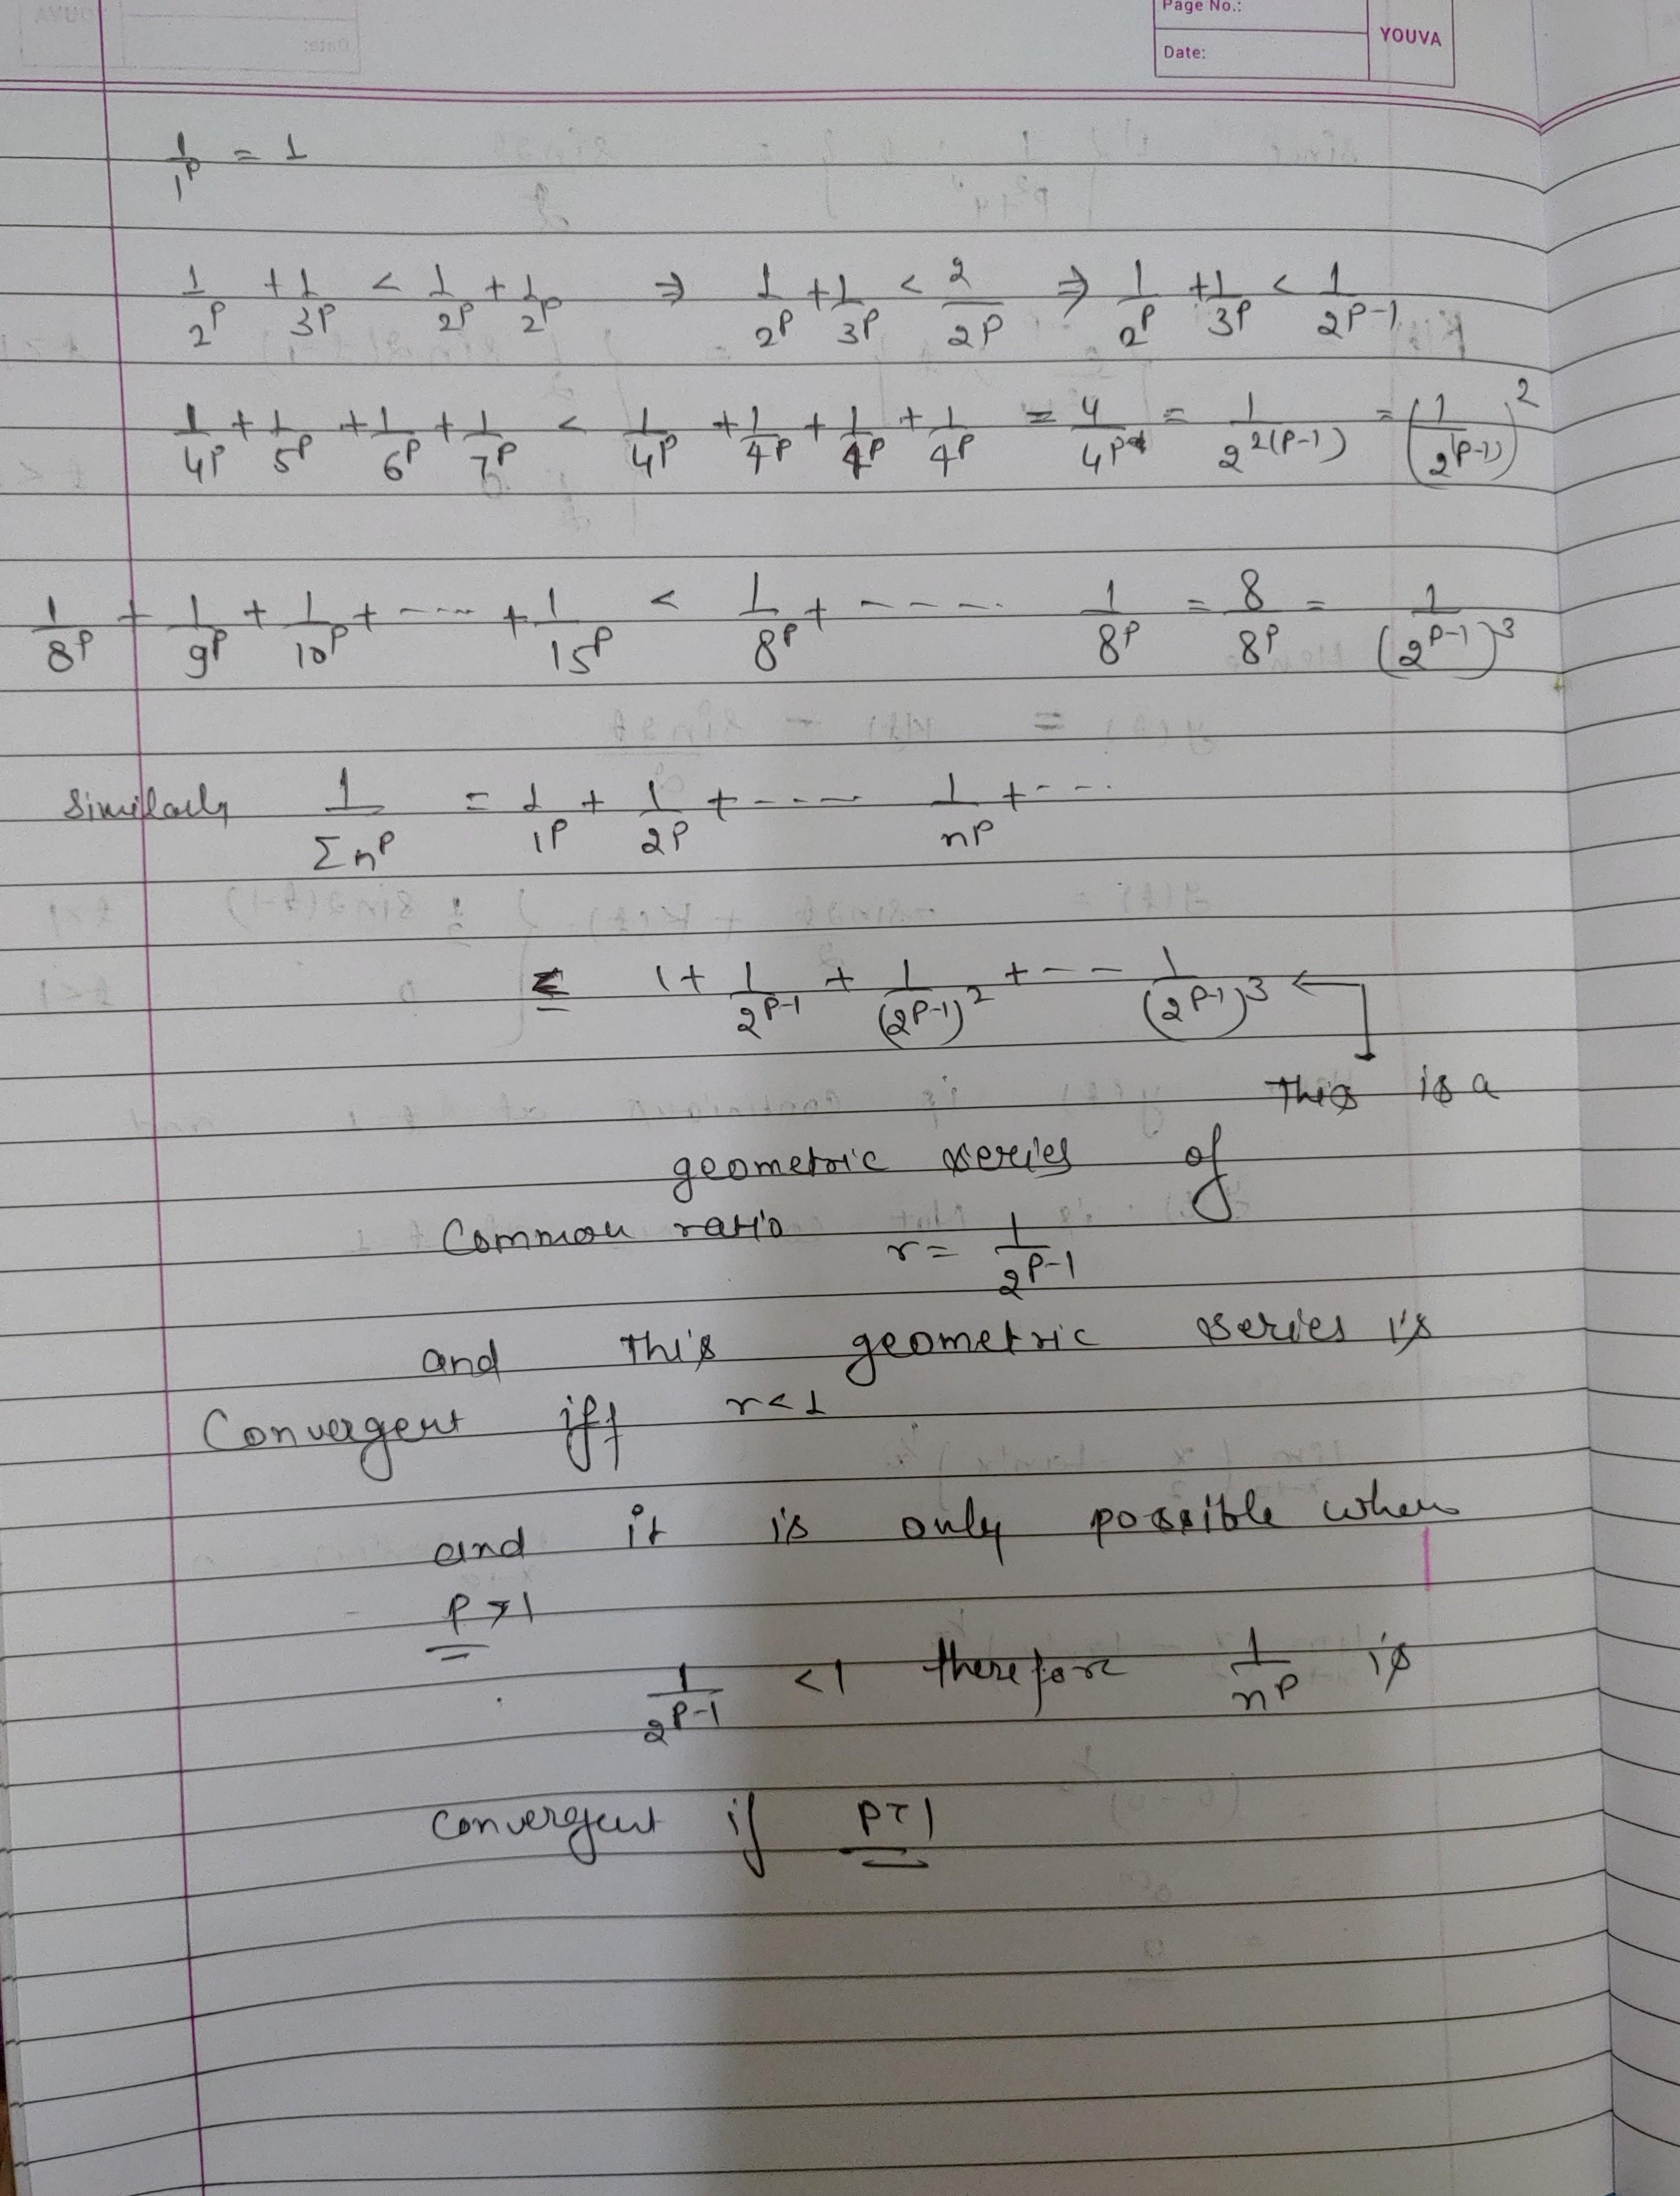 Page No.:
Date:
YOUVA
1/1^p = 1
1/2^p + 1/3^p < 1/2^p + 1/2^p ⇒ 1/2^p + 1/3^p < 2/2^p ⇒ 1/2^p + 1/3^p < 1/2^(p-1)
1/4^p + 1/5^p + 1/6^p + 1/7^p < 1/4^p + 1/4^p + 1/4^p + 1/4^p = 4/4^p = 1/2^(2(p-1)) = (1/2^(p-1))^2
1/8^p + 1/9^p + 1/10^p + ---- + 1/15^p < 1/8^p + ----- 1/8^p = 8/8^p = 1/(2^(p-1))^3
Similarly 1/Σn^p = 1/1^p + 1/2^p + ---- 1/n^p + ---
≤ 1 + 1/2^(p-1) + 1/(2^(p-1))^2 + --- 1/(2^(p-1))^3 ←
This is a
geometric series of
Common ratio r = 1/2^(p-1)
and This geometric series is
Convergent iff r<1
and it is only possible when
p>1
1/2^(p-1) <1 therefore 1/n^p is
convergent if p>1